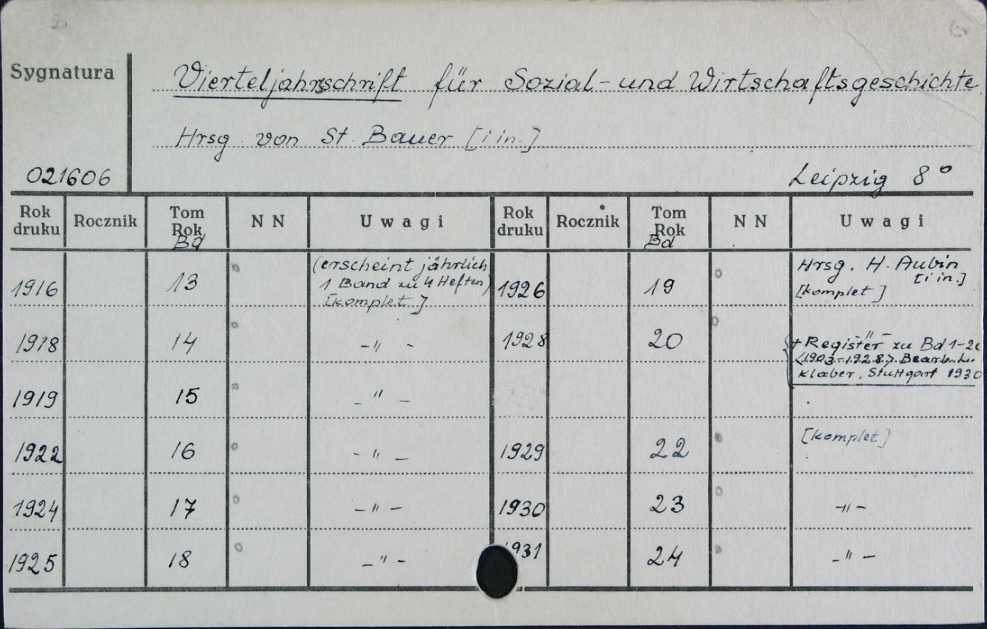 Sygnatura
Vierteljahrsschrift für Sozial- und Wirtschaftsgeschichte
Hrsg. von St. Bauer [i in.]
021606
Leipzig 8°
Rok druku Rocznik Tom Rok Bd NN Uwagi Rok druku Rocznik Tom Rok Bd NN Uwagi
1916 13 (erscheint jährlich
1 Band zu 4 Heften)
[komplet]
1918 14 -"-
1919 15 -"-
1922 16 -"-
1924 17 -"-
1925 18 -"-
1926 19 Hrsg. H. Aubin
[i in.]
[komplet]
1928 20 -"-
+ Register zu Bd 1-20
<1903-1928>. Bearb.
Klaber. Stuttgart 1930
1929 22 [komplet]
1930 23 -"-
1931 24 -"-